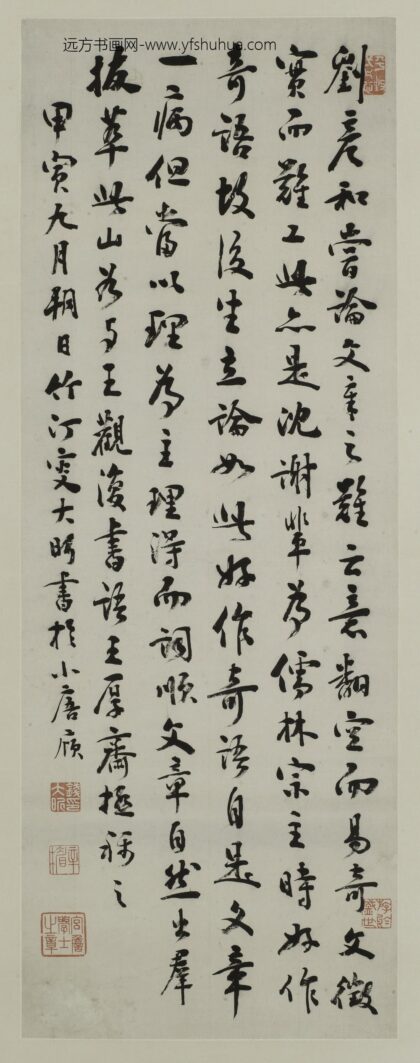 远方书画网-www.yfshuhua.com
劉彥和嘗論文章之難云意翻空而易奇文徵
實而難工此亦是沈謝輩為儒林宗主時好作
奇語故後生立論如此好作奇語自是文章
一病但當以理為主理得而詞順文章自然出羣
拔萃此山谷与王觀復書語王厚齋極稱之
甲寅九月朔日竹汀叟大昕書於小唐
錢印大昕
宮詹學士之章